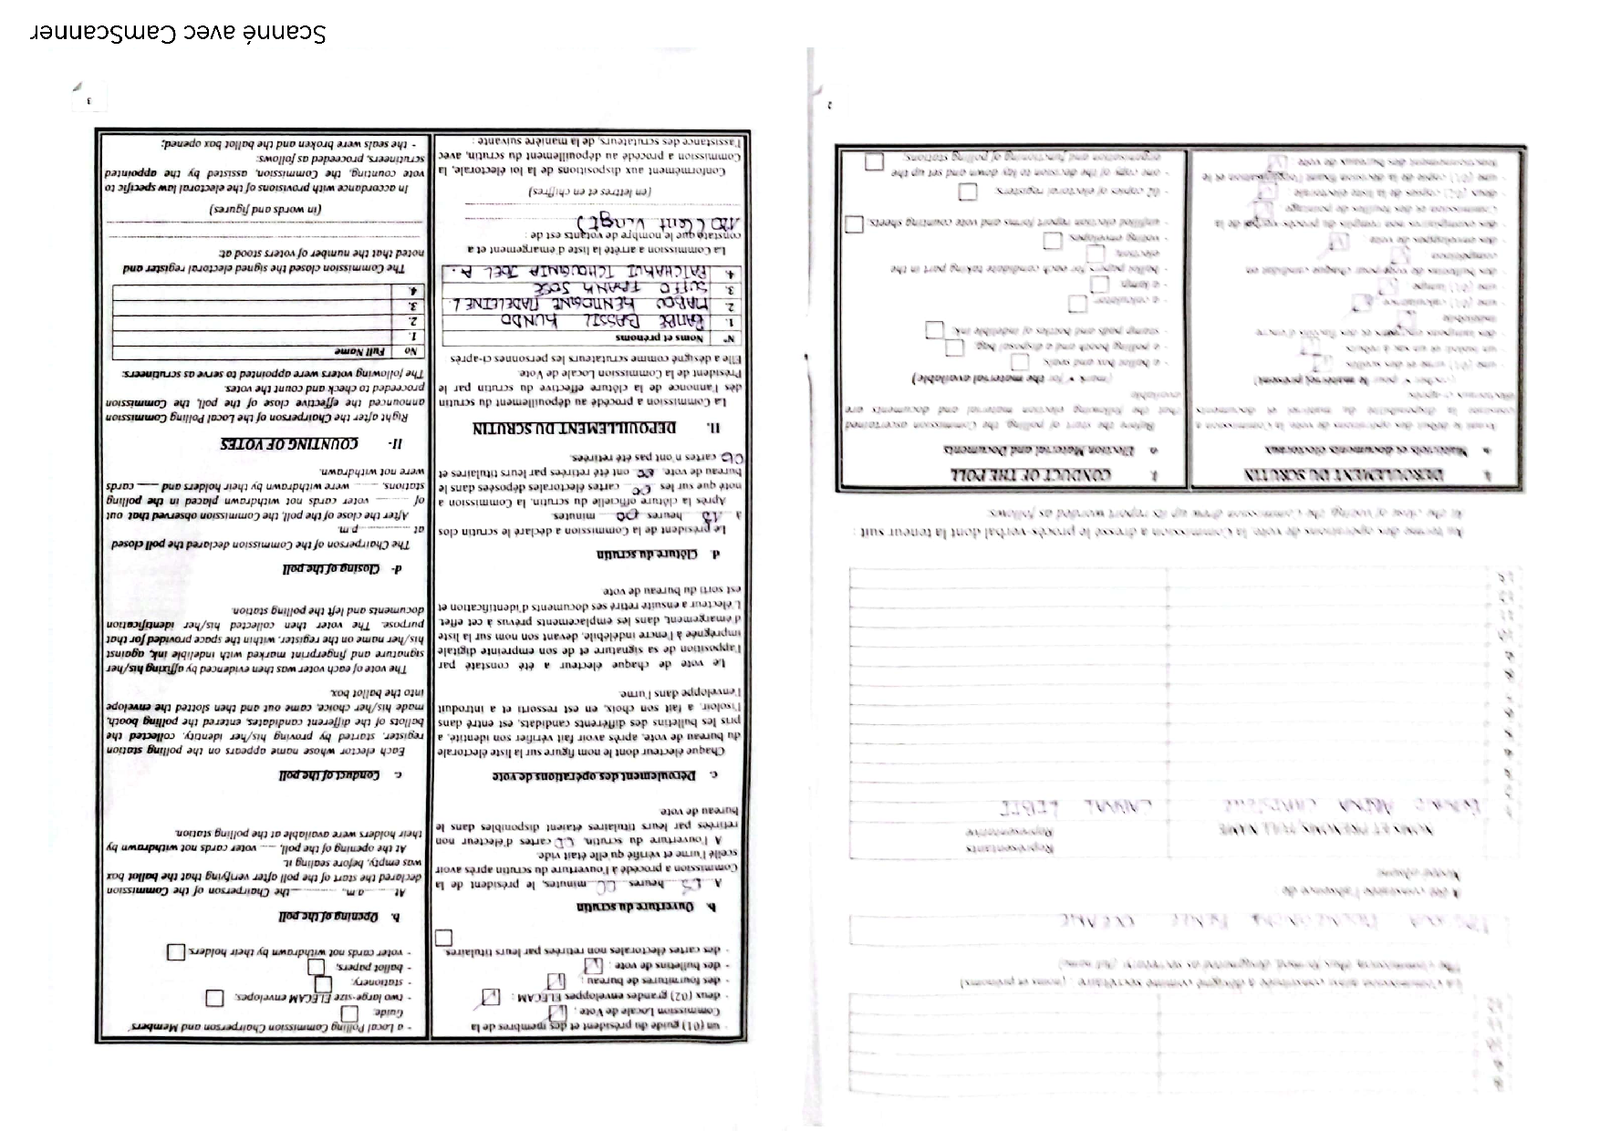 La Commission ainsi constituée a désigné comme secrétaire : (noms et prénoms)
The Commission thus formed, designated as secretary: (full name)
A été constatée l'absence de
NOMS ET PRENOMS, FULL NAME
Représentants
Representative
Au terme des opérations de vote, la Commission a dressé le procès-verbal dont la teneur suit :
At the close of voting, the Commission drew up its report worded as follows:
I. DEROULEMENT DU SCRUTIN
a. Matériels et documents électoraux
Avant le début des opérations de vote, la Commission a
constaté la disponibilité du matériel et documents
électoraux ci-après
(cocher pour le matériel présent)
- une (01) urne et des scellés
- un isoloir et un sac à rebuts
- des tampons encreurs et des flacons d'encre
indélébile
- une (01) calculatrice
- une (01) lampe
- des bulletins de vote pour chaque candidat en
compétition
- des enveloppes de vote
- des exemplaires non remplis du procès verbal de la
Commission et des feuilles de pointage
- deux (02) copies de la liste électorale
- une (01) copie de la décision fixant l'organisation et le
fonctionnement des bureaux de vote
I. CONDUCT OF THE POLL
a. Election Material and Documents
Before the start of polling, the Commission ascertained
that the following election material and documents are
available
(mark for the material available)
- a ballot box and seals;
- a polling booth and a disposal bag;
- stamp pads and bottles of indelible ink;
- a calculator
- a lamp
- ballot papers for each candidate taking part in the
election;
- voting envelopes;
- unfilled election report forms and vote counting sheets;
- 02 copies of electoral registers;
- one copy of the decision to lay down and set up the
organisation and functioning of polling stations;
2
- un (01) guide du président et des membres de la
Commission Locale de Vote ;
- deux (02) grandes enveloppes ELECAM ;
- des fournitures de bureau ;
- des bulletins de vote ;
- des cartes électorales non retirées par leurs titulaires
b. Ouverture du scrutin
A heures minutes, le président de la
Commission a procédé à l'ouverture du scrutin après avoir
scellé l'urne et vérifié qu'elle était vide.
A l'ouverture du scrutin, cartes d'électeur non
retirées par leurs titulaires étaient disponibles dans le
bureau de vote
c. Déroulement des opérations de vote
Chaque électeur dont le nom figure sur la liste électorale
du bureau de vote, après avoir fait vérifier son identité, a
pris les bulletins des différents candidats, est entré dans
l'isoloir, a fait son choix, en est ressorti et a introduit
l'enveloppe dans l'urne.
Le vote de chaque électeur a été constaté par
l'apposition de sa signature et de son empreinte digitale
imprégnée à l'encre indélébile, devant son nom sur la liste
d'émargement, dans les emplacements prévus à cet effet.
L'électeur a ensuite retiré ses documents d'identification et
est sorti du bureau de vote
d. Clôture du scrutin
Le président de la Commission a déclaré le scrutin clos
à 18 heures 00 minutes.
Après la clôture officielle du scrutin, la Commission a
noté que sur les 00 cartes électorales déposées dans le
bureau de vote, 00 ont été retirées par leurs titulaires et
00 cartes n'ont pas été retirées.
II. DEPOUILLEMENT DU SCRUTIN
La Commission a procédé au dépouillement du scrutin
dès l'annonce de la clôture effective du scrutin par le
Président de la Commission Locale de Vote.
Elle a désigné comme scrutateurs les personnes ci-après
N° Noms et prénoms
1. BASSIL
2. MADELEINE L
3. SUFFO FRANK JOSE
4. FATCHAHUI TCHOUGNIA JOEL A.
La Commission a arrêté la liste d'émargement et a
constaté que le nombre de votants est de :
120 (Cent Vingt)
(en lettres et en chiffres)
Conformément aux dispositions de la loi électorale, la
Commission a procédé au dépouillement du scrutin, avec
l'assistance des scrutateurs, de la manière suivante :
- a Local Polling Commission Chairperson and Members'
Guide;
- two large-size ELECAM envelopes;
- stationery;
- ballot papers;
- voter cards not withdrawn by their holders;
b. Opening of the poll
At a.m, the Chairperson of the Commission
declared the start of the poll after verifying that the ballot box
was empty, before sealing it.
At the opening of the poll, voter cards not withdrawn by
their holders were available at the polling station.
c. Conduct of the poll
Each elector whose name appears on the polling station
register, started by proving his/her identity, collected the
ballots of the different candidates, entered the polling booth,
made his/her choice, came out and then slotted the envelope
into the ballot box.
The vote of each voter was then evidenced by affixing his/her
signature and fingerprint marked with indelible ink, against
his/her name on the register, within the space provided for that
purpose. The voter then collected his/her identification
documents and left the polling station.
d- Closing of the poll
The Chairperson of the Commission declared the poll closed
at p.m.
After the close of the poll, the Commission observed that out
of voter cards not withdrawn placed in the polling
stations, were withdrawn by their holders and cards
were not withdrawn.
II- COUNTING OF VOTES
Right after the Chairperson of the Local Polling Commission
announced the effective close of the poll, the Commission
proceeded to check and count the votes.
The following voters were appointed to serve as scrutineers:
No Full Name
1.
2.
3.
4.
The Commission closed the signed electoral register and
noted that the number of voters stood at:
(in words and figures)
In accordance with provisions of the electoral law specific to
vote counting, the Commission, assisted by the appointed
scrutineers, proceeded as follows:
- the seals were broken and the ballot box opened;
3
Scanné avec CamScanner